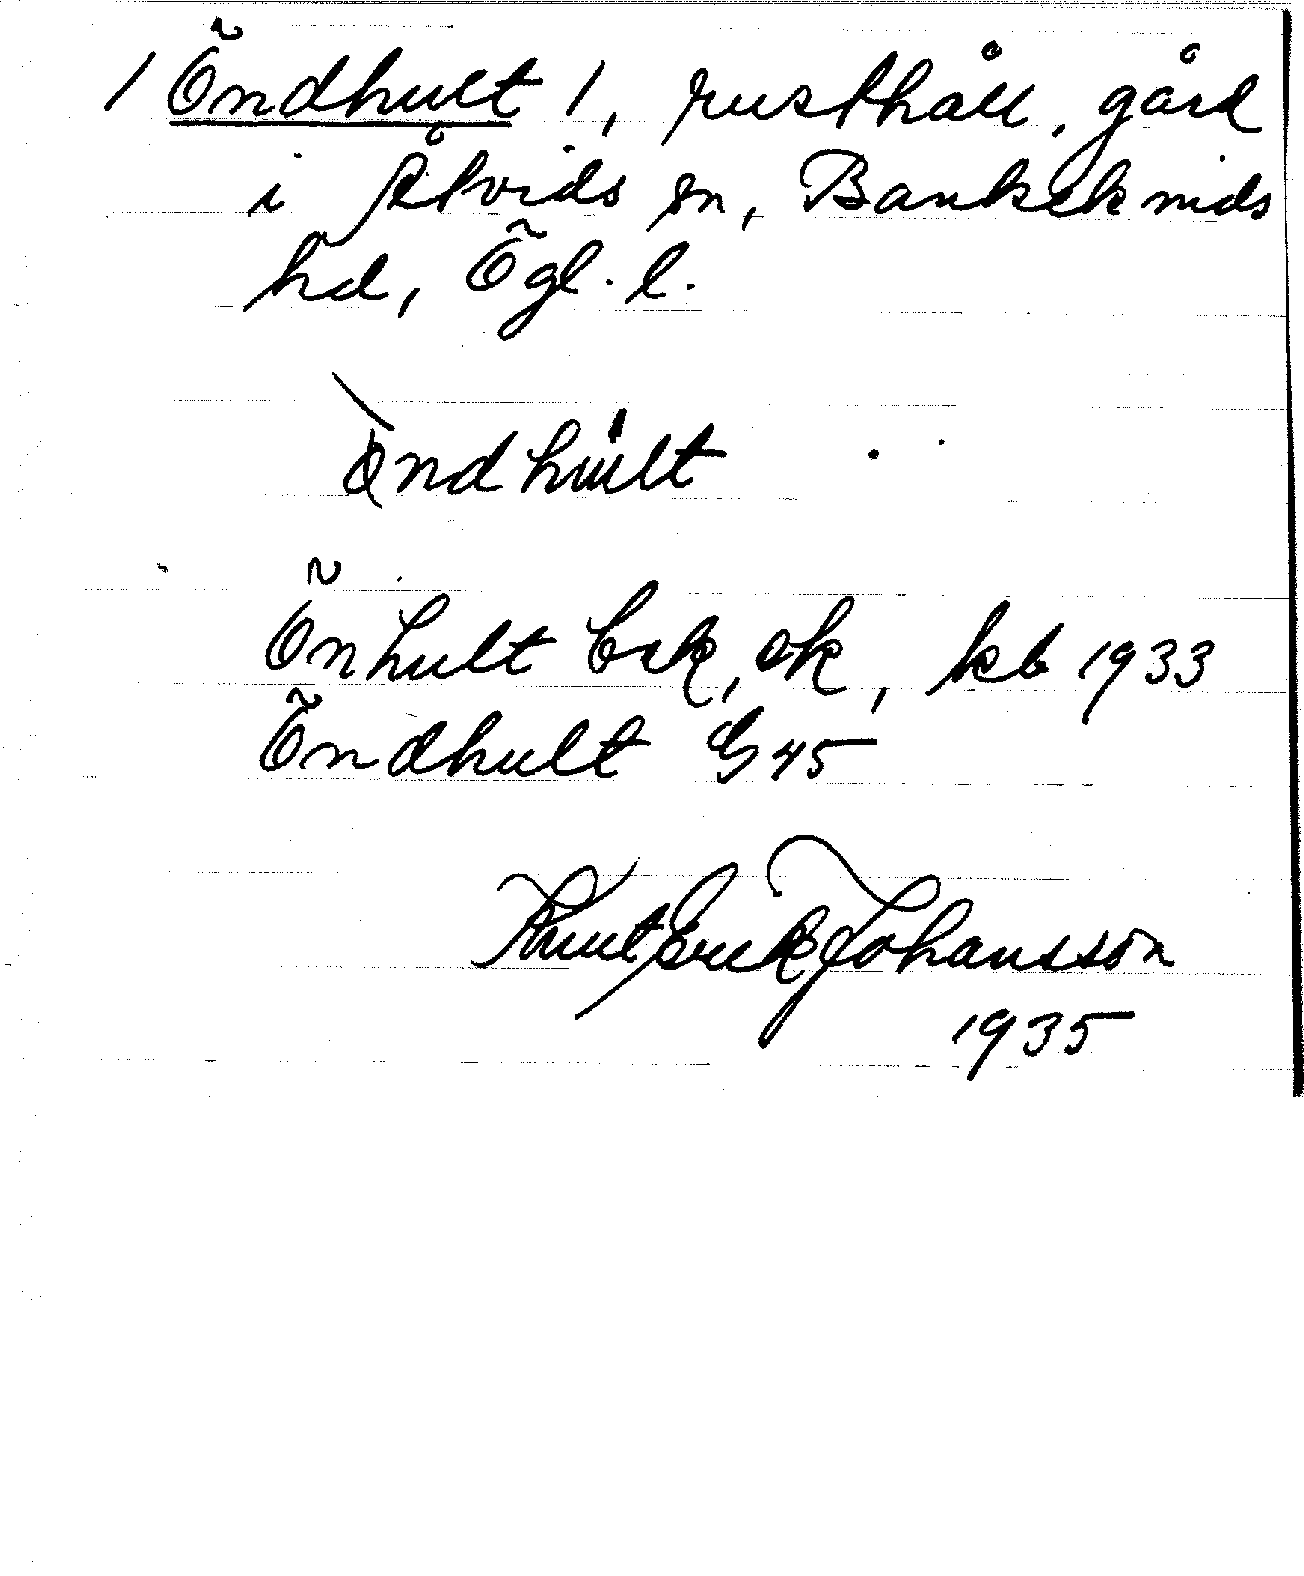 / Öndhult /, rusthåll, gård
i Åtvids sn, Bankekinds
hd, Ögl. l.
öndhult
Önhult Eek, ek, kb 1933
Öndhult G 45
Knut Erik Johansson
1935